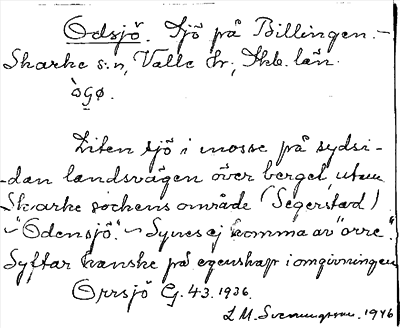 Odsjö. Sjö på Billingen.-
Skarke s:n, Valle hr, Skb. län.
Liten sjö i mosse på sydsi-
-dan landsvägen över berget, utom
Skarke sockens område (Segerstad)
"Odensjö." Synes ej komma av "orre".
Syftar kanske på egenskap i omgivningen
Orrsjö G. 43. 1936.
L M. Svenungsson. 1946